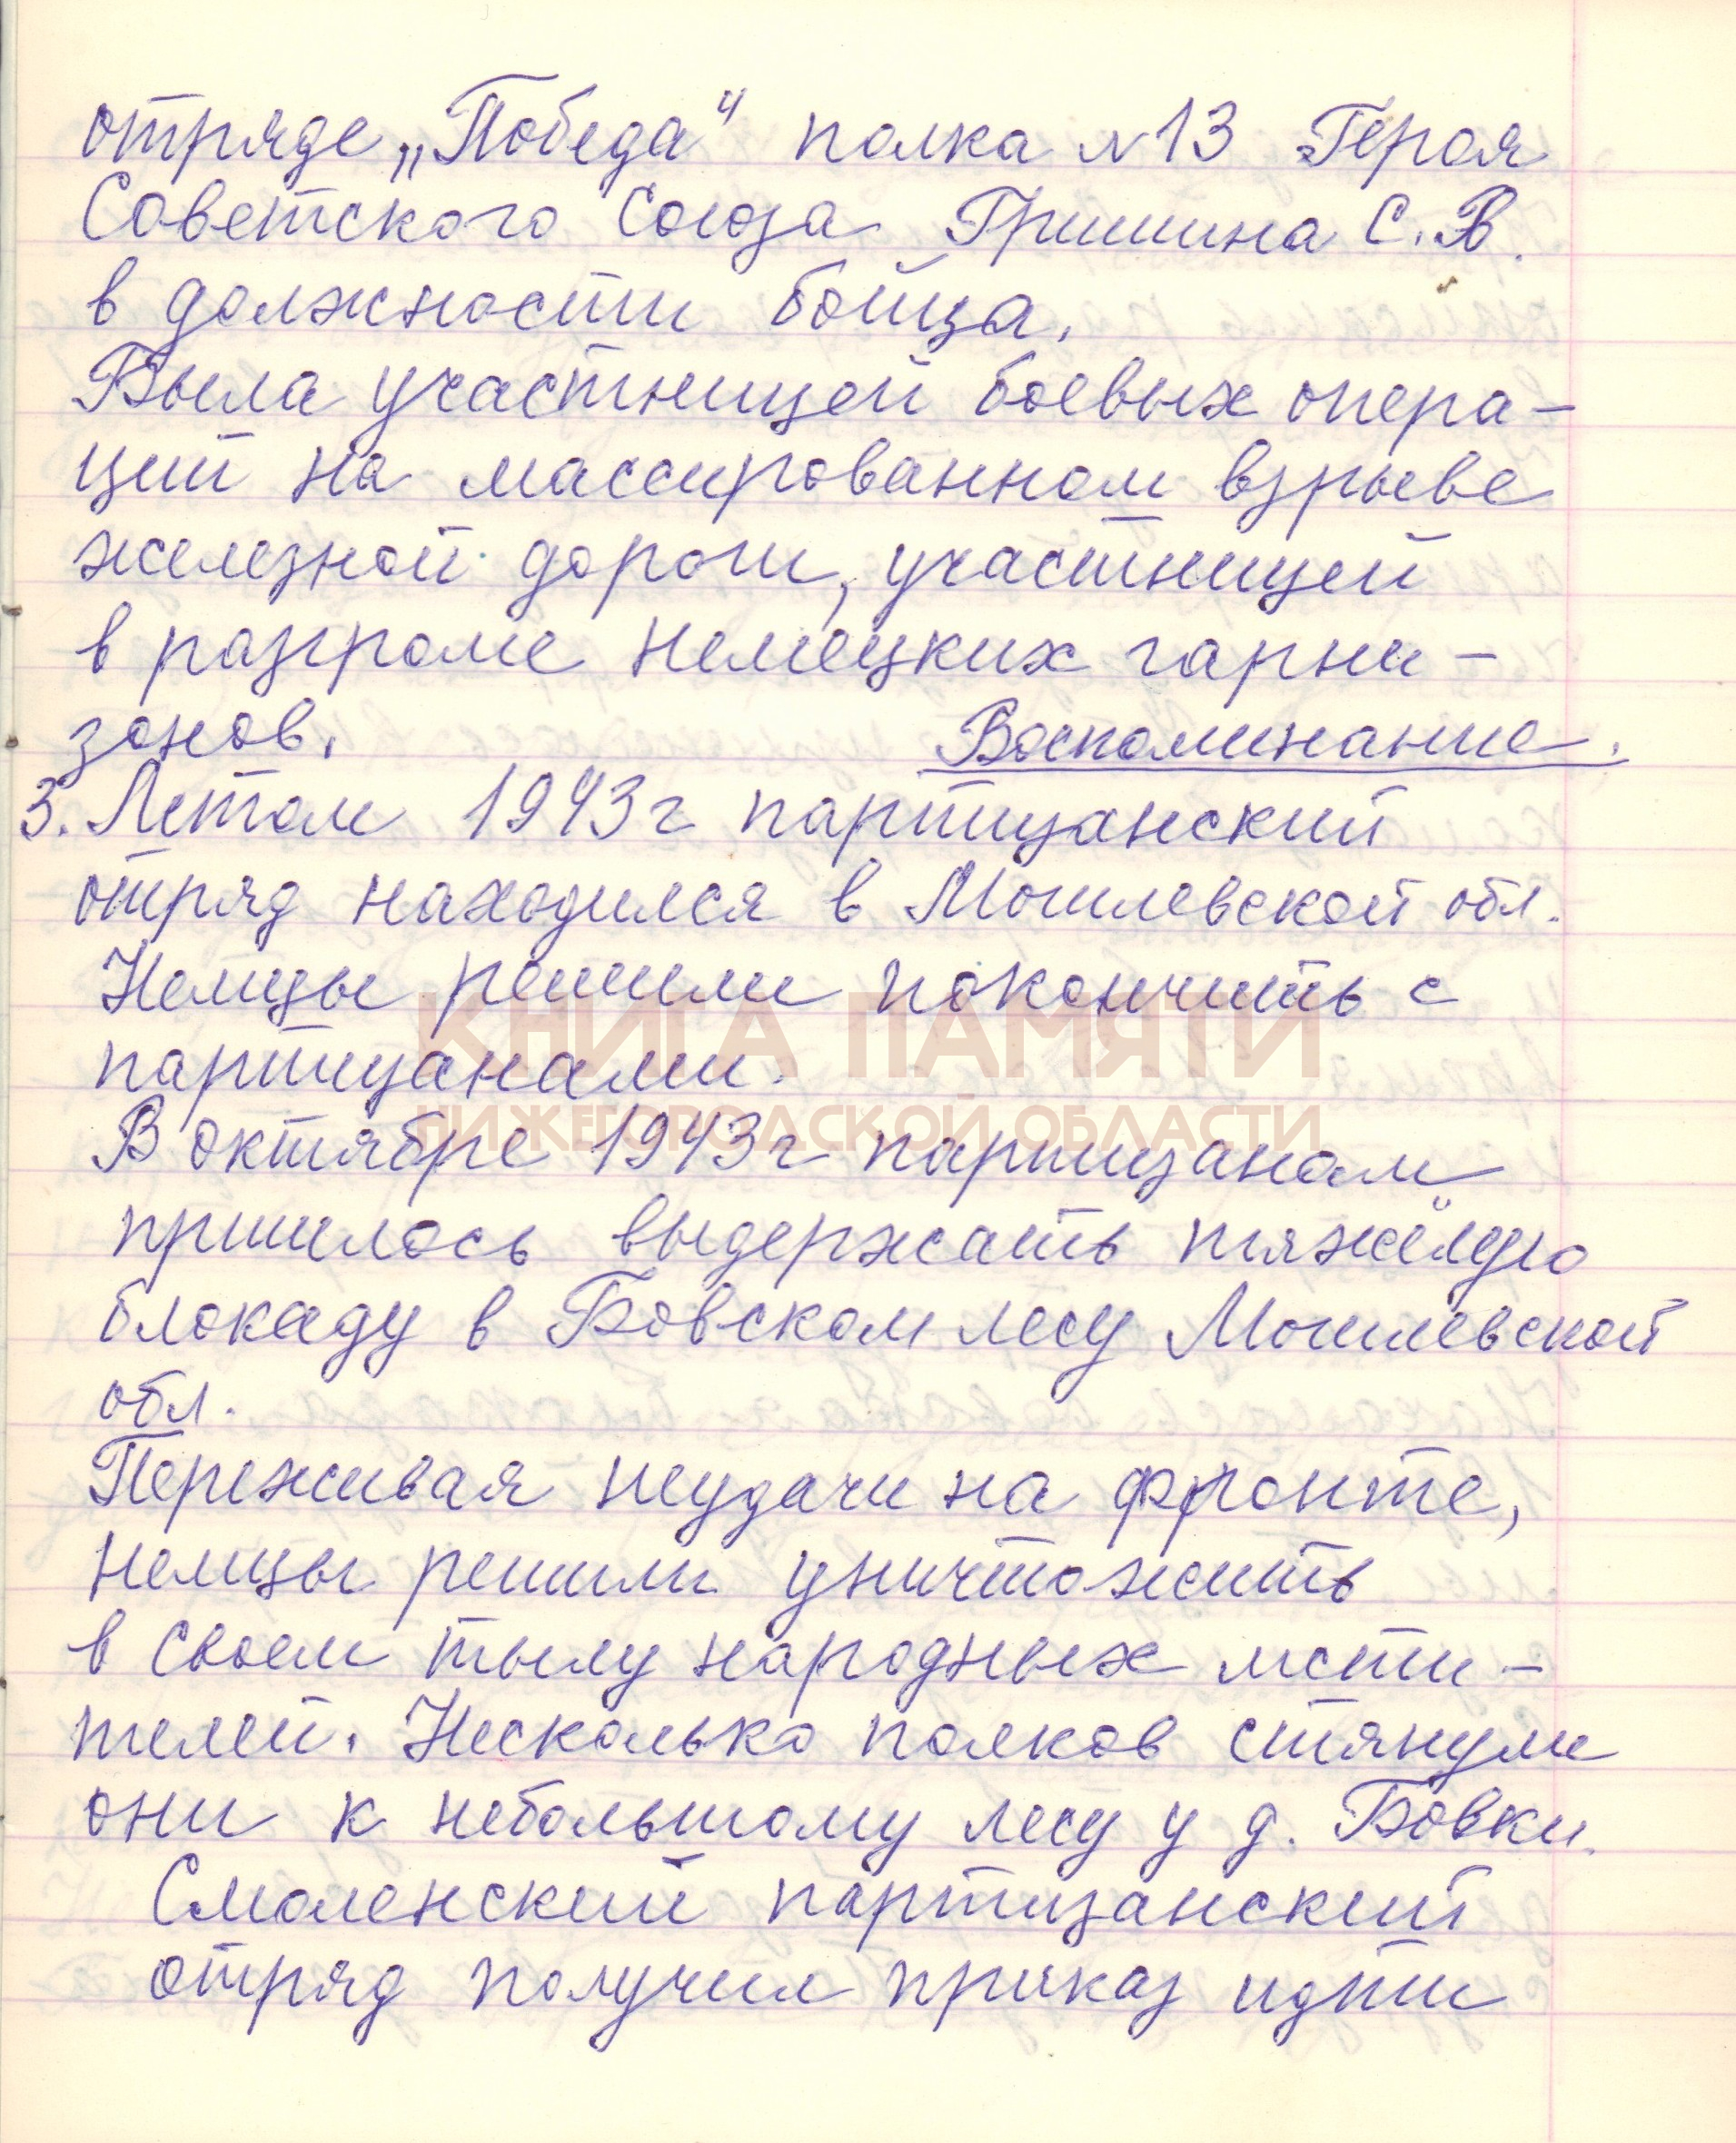 отряде „Победа" полка №13 Героя
Советского Союза Гришина С.В.
в должности бойца.
Была участницей боевых опера-
ций на массированном взрыве
железной дороги, участницей
в разгроме немецких гарни-
зонов. Воспоминание.
3. Летом 1943г партизанский
отряд находился в Могилевской обл.
Немцы решили покончить с
партизанами.
КНИГА ПАМЯТИ
НИЖЕГОРОДСКОЙ ОБЛАСТИ
В октябре 1943г партизанам
пришлось выдержать тяжёлую
блокаду в Бовском лесу Могилевской
обл.
Переживая неудачи на фронте,
немцы решили уничтожить
в своем тылу народных мсти-
телей. Несколько полков стянули
они к небольшому лесу у д. Бовки.
Смоленский партизанский
отряд получил приказ идти